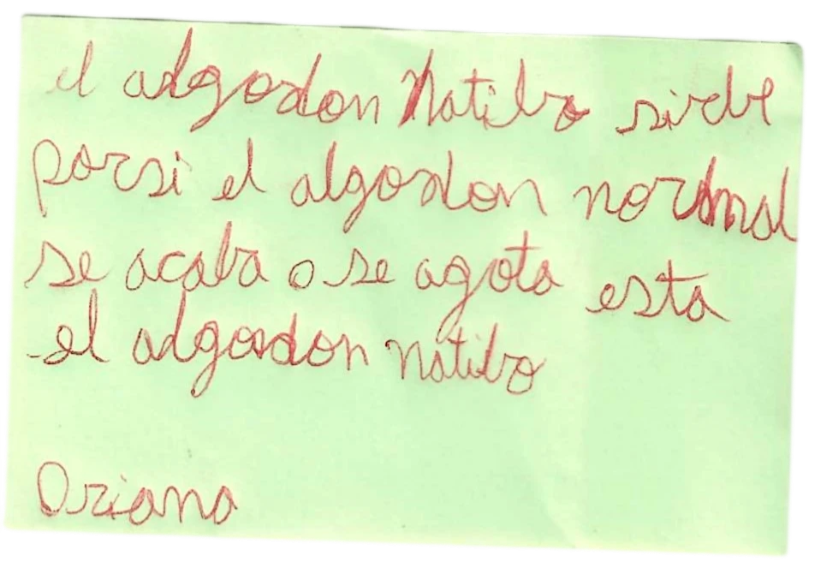 el algodon Natibo sirbe
porsi el algodon normal
se acaba o se agota esta
el algodon natibo
Oriana